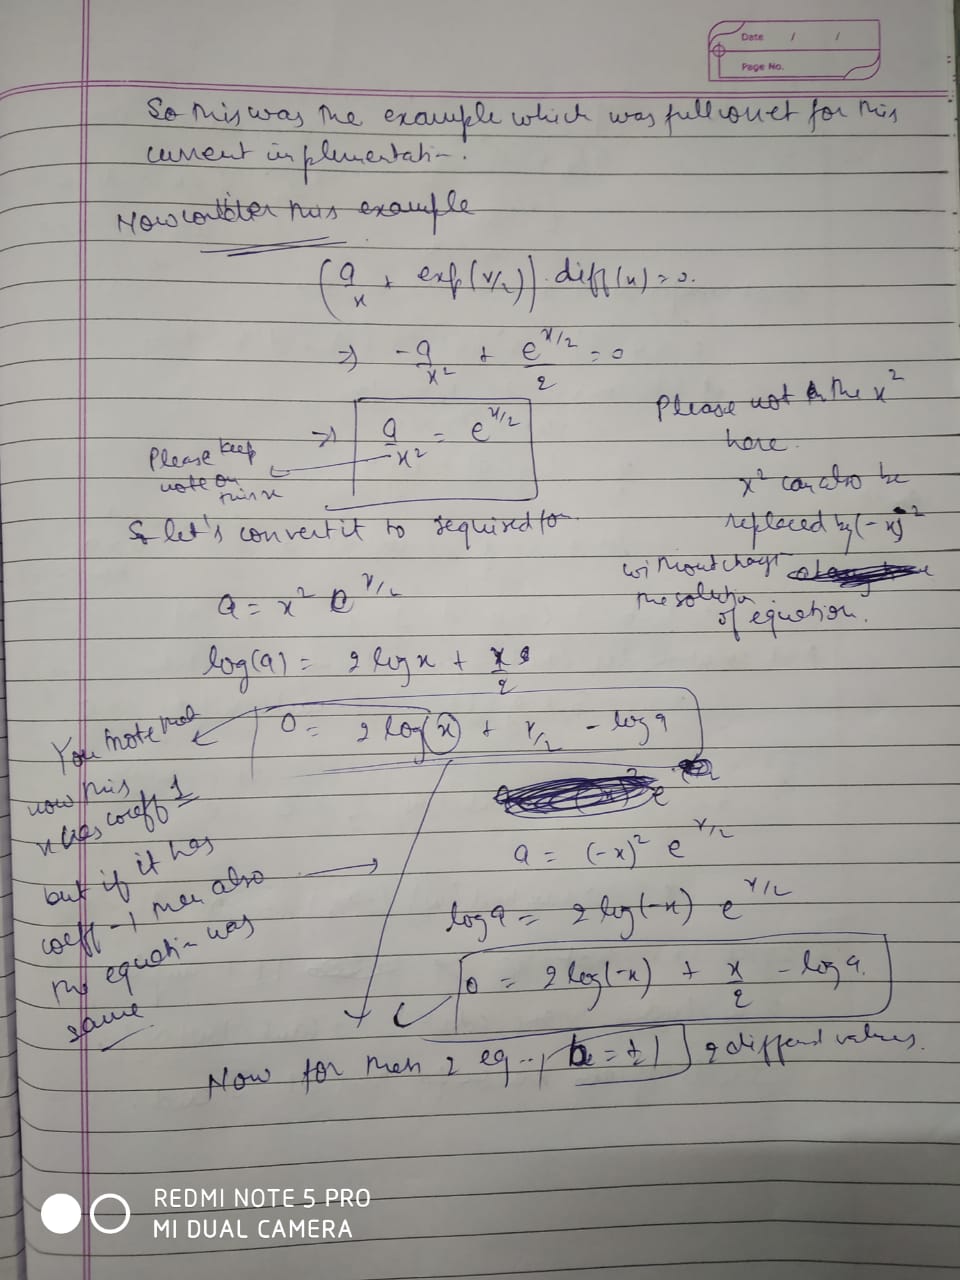 Date / /
Page No.
So this was the example which was full correct for this
current implementation.
Now consider this example
(a/x + exp(x/2)).diff(x) = 0.
⇒ -a/x² + e^(x/2)/2 = 0
⇒ a/x² = e^(x/2)
Please keep
note on
this x
Please not the x²
here.
x² can also be
replaced by (-x)²
without chang
the solution
of equation.
So let's convert it to required for
a = x² e^(x/2)
log(a) = 2 log x + x/2
0 = 2 log(x) + x/2 - log a
You note that
now this
x has coeff 1
but if it has
coeff -1 then also
the equation was
same
a = (-x)² e^(x/2)
log a = 2 log(-x) e^(x/2)
0 = 2 log(-x) + x/2 - log a.
Now for then 2 eq.., b = ±1 2 different values.
REDMI NOTE 5 PRO
MI DUAL CAMERA